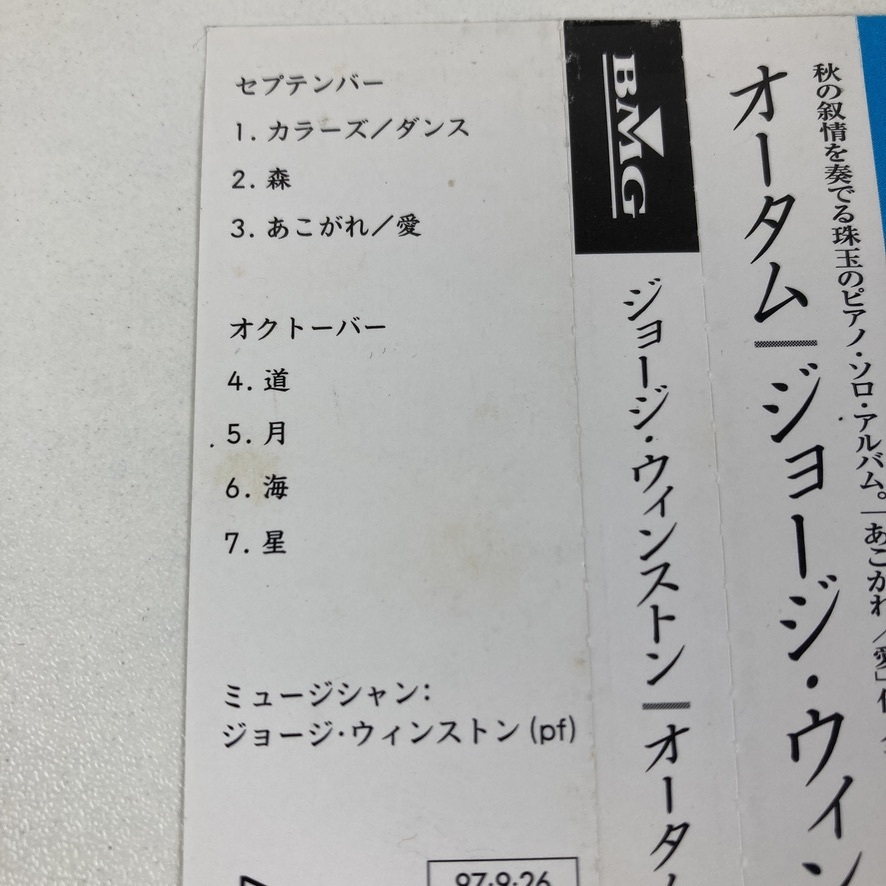 セプテンバー
1. カラーズ／ダンス
2. 森
3. あこがれ／愛
オクトーバー
4. 道
5. 月
6. 海
7. 星
ミュージシャン：
ジョージ・ウィンストン (pf)
97・9・26
BMG
ジョージ・ウィンストン オータム
オータム ジョージ・ウィン
秋の叙情を奏でる珠玉のピアノ・ソロ・アルバム。「あこがれ／愛」